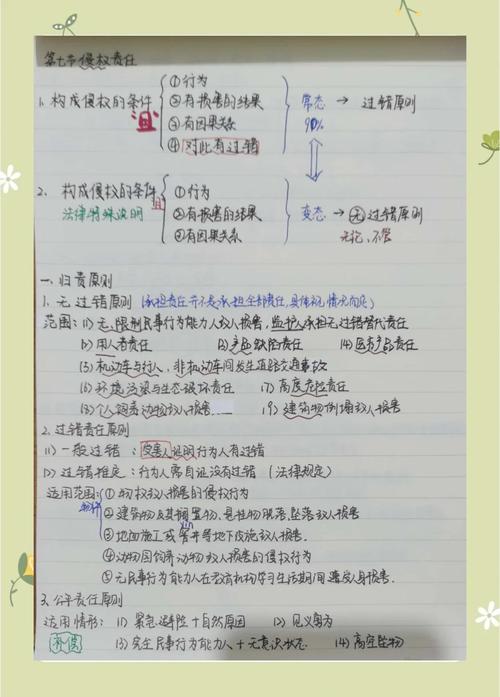 第七节 侵权责任
1. 构成侵权的条件 且 ①行为 ②有损害的结果 ③有因果关系 ④对此有过错 常态 90% → 过错原则
2. 构成侵权的条件 且 ①行为 ②有损害的结果 ③有因果关系 变态 → 无过错原则
法律特殊说明
无论、不管
一、归责原则
1. 无过错原则(承担责任并不是承担全部责任,具体视情况而定)
范围:(1) 无、限制民事行为能力人致人损害,监护人承担无过错替代责任
(2) 用人者责任 (3) 产品缺陷责任 (4) 医疗产品责任
(5) 机动车与行人、非机动车间发生道路交通事故
(6) 环境污染与生态破坏责任 (7) 高度危险责任
(8) 个人饲养动物致人损害 (9) 建筑物倒塌致人损害
2. 过错责任原则
(1) 一般过错:受害人证明行为人有过错
(2) 过错推定:行为人需自证没有过错(法律规定)
适用范围:① 物权致人损害的侵权行为
物件
② 建筑物及其搁置物、悬挂物脱落、坠落致人损害
③ 地面施工或窨井等地下设施致人损害
yìn
④ 动物园饲养动物致人损害的侵权行为
⑤ 无民事行为能力人在教育机构学习生活期间遭受人身损害.
3. 公平责任原则
适用情形:(1) 紧急避险 + 自然原因 (2) 见义勇为
补偿 (3) 完全民事行为能力人 + 无意识状态 (4) 高空坠物